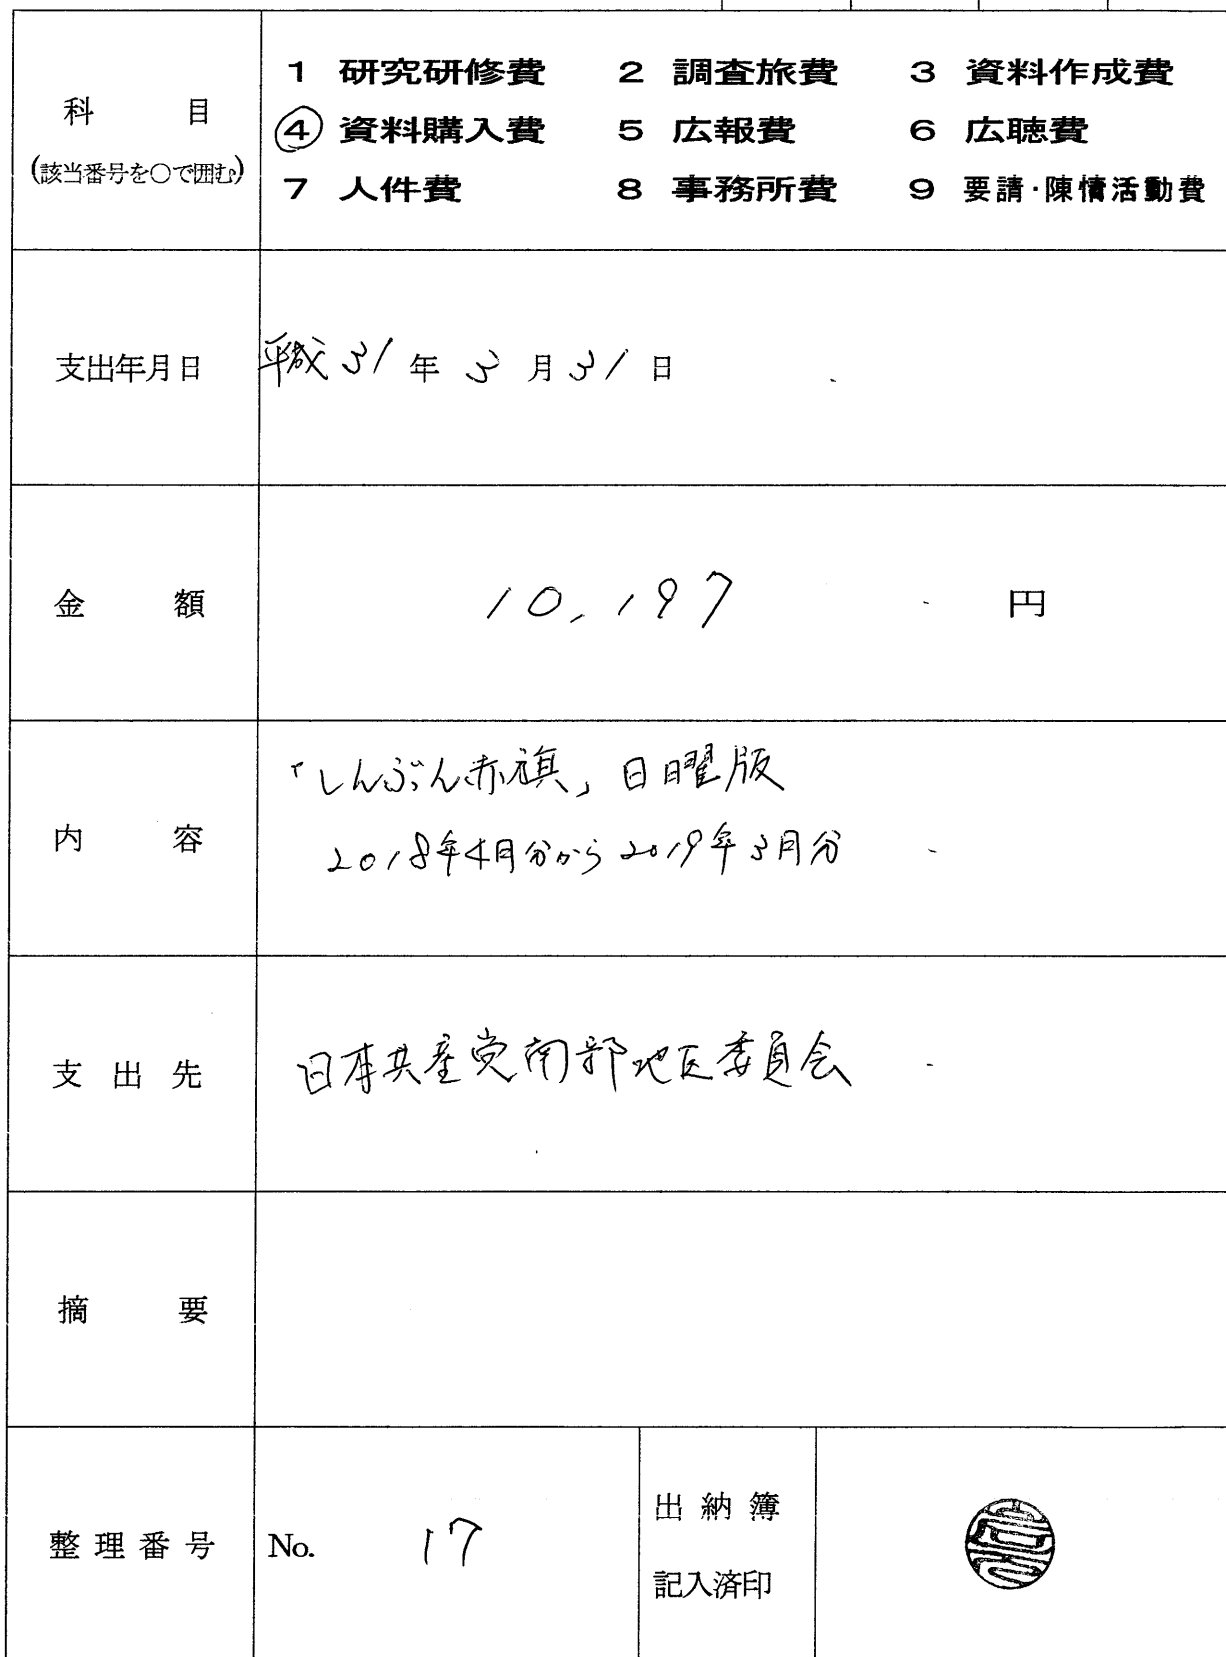 科 目
(該当番号を○で囲む)
1 研究研修費 2 調査旅費 3 資料作成費
④ 資料購入費 5 広報費 6 広聴費
7 人件費 8 事務所費 9 要請・陳情活動費
支出年月日
平成31年3月31日
金 額
10,197 円
内 容
「しんぶん赤旗」日曜版
2018年4月分から2019年3月分
支 出 先
日本共産党南部地区委員会
摘 要
整 理 番 号
No. 17
出 納 簿
記入済印